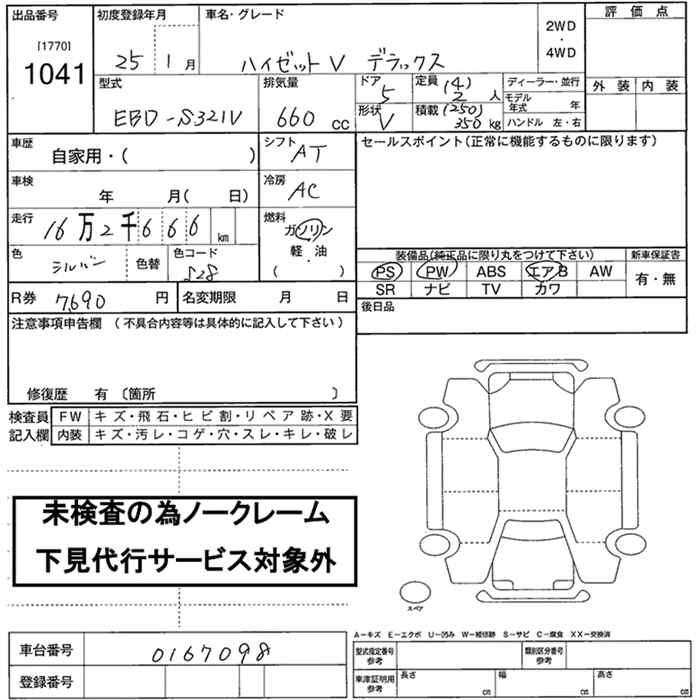 出品番号
[1770]
1041
初度登録年月
25 1月
車名・グレード
ハイゼットV デラックス
2WD
・
4WD
評価点
外装 内装
型式
EBD-S321V
排気量
660 cc
ドア
5
形状
V
定員 (4)
2 人
積載 (250)
350 kg
ディーラー・並行
モデル年式 年
ハンドル 左・右
車歴
自家用・( )
シフト
AT
車検
年 月( 日)
冷房
AC
走行
16万2千666 km
燃料
ガソリン
軽・油
( )
色
シルバー
色替
色コード
S28
R券 7,690 円
名変期限 月 日
セールスポイント(正常に機能するものに限ります)
装備品(純正品に限り丸をつけて下さい)
新車保証書
PS PW ABS エアB AW
SR ナビ TV カワ
有・無
後日品
注意事項申告欄 (不具合内容等は具体的に記入して下さい)
修復歴 有〔箇所 〕
検査員
記入欄
FW キズ・飛石・ヒビ割・リペア跡・X要
内装 キズ・汚レ・コゲ・穴・スレ・キレ・破レ
未検査の為ノークレーム
下見代行サービス対象外
スペア
A-キズ E-エクボ U-凹み W-補修跡 S-サビ C-腐食 XX-交換済
車台番号 0167098
登録番号
型式指定番号
参考
類別区分番号
参考
車庫証明用
参考
長さ cm
幅 cm
高さ cm